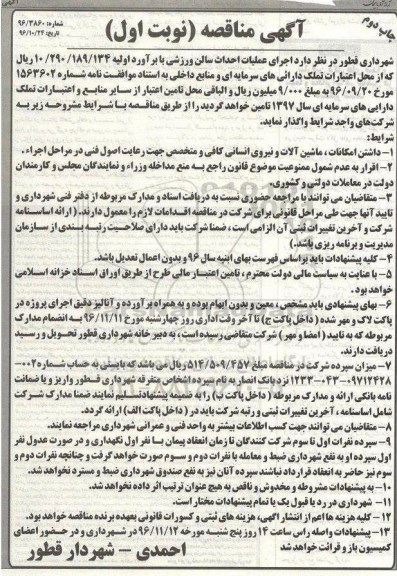 آگهی
شماره: ۹۶/۳۸۶۰
تاریخ: ۹۶/۱۰/۲۴
آگهی مناقصه (نوبت اول)
چاپ دوم
شهرداری قطور در نظر دارد اجرای عملیات احداث سالن ورزشی با برآورد اولیه ۱۰/۲۹۰/۱۸۹/۱۳۴ ریال
که از محل اعتبارات تملک دارائی های سرمایه ای و منابع داخلی به استناد موافقت نامه شماره ۱۵۶۳۶۰۲
مورخ ۹۶/۰۹/۲۰ به مبلغ ۹/۰۰۰ میلیون ریال و الباقی محل تامین اعتبار از سایر منابع و اعتبارات تملک
دارایی های سرمایه ای سال ۱۳۹۷ تامین خواهد گردید را از طریق مناقصه با شرایط مشروحه زیر به
شرکت‌های واجد شرایط واگذار نماید.
شرایط:
۱- داشتن امکانات، ماشین آلات و نیروی انسانی کافی و متخصص جهت رعایت اصول فنی در مراحل اجراء.
۲- اقرار به عدم شمول ممنوعیت موضوع قانون راجع به منع مداخله وزراء و نمایندگان مجلس و کارمندان
دولت در معاملات دولتی و کشوری.
۳- متقاضیان می توانند با مراجعه حضوری نسبت به دریافت اسناد و مدارک مربوطه از دفتر فنی شهرداری و
تایید آنها جهت طی مراحل قانونی برای شرکت در مناقصه اقدامات لازم را معمول دارند. (ارائه اساسنامه
شرکت و آخرین تغییرات ثبتی آن الزامی است، ضمنا شرکت باید دارای صلاحیت رتبه بندی از سازمان
مدیریت و برنامه ریزی باشد.)
۴- کلیه پیشنهادات باید بر اساس فهرست بهای ابنیه سال ۹۶ و بدون اعمال تعدیل باشد.
۵- با عنایت به سیاست مالی دولت محترم، تامین اعتبار مالی طرح از طریق اوراق اسناد خزانه اسلامی
خواهد بود.
۶- بهای پیشنهادی باید مشخص، معین و بدون ابهام بوده و به همراه برآورده و آنالیز دقیق اجرای پروژه در
پاکت لاک و مهر شده (داخل پاکت ج) تا آخر وقت اداری روز چهارشنبه مورخ ۹۶/۱۱/۱۱ به انضمام مدارک
مربوطه که به تایید (امضا و مهر) شرکت متقاضی رسیده است، به دبیر خانه شهرداری قطور تحویل و رسید
دریافت دارند.
۷- میزان سپرده شرکت در مناقصه مبلغ ۵۱۴/۵۰۹/۴۵۷ ریال می باشد که بایستی به حساب شماره
نزد بانک انصار به نام سپرده اشخاص متفرقه شهرداری قطور واریز و یا ضمانت
نامه بانکی ارائه و مدارک مربوطه (داخل پاکت ب) را به ضمیمه پیشنهاد تسلیم نمایند ضمنا مدارک شرکت
شامل اساسنامه، آخرین تغییرات ثبتی و رتبه شرکت باید در (داخل پاکت الف) ارائه گردد.
۸- متقاضیان می توانند جهت کسب اطلاعات بیشتر به واحد فنی و عمرانی شهرداری مراجعه نمایند.
۹- سپرده نفرات اول تا سوم شرکت کنندگان تا زمان انعقاد پیمان با نفر اول نگهداری و در صورت عدول نفر
اول سپرده او به نفع شهرداری ضبط و معامله با نفرات دوم و سوم صورت خواهد گرفت و چنانچه نفرات دوم و
سوم نیز حاضر به انعقاد قرارداد نباشند سپرده آنان نیز به نفع صندوق شهرداری ضبط و مسترد نخواهد شد.
۱۰- به پیشنهادات مشروطه و مخدوش و ناقص به هیچ عنوان ترتیب اثر داده نخواهد شد.
۱۱- شهرداری در رد یا قبول یک یا تمام پیشنهادات مختار است.
۱۲- کلیه هزینه ها اعم از انتشار آگهی، هزینه های ثبتی و کسورات قانونی بعهده برنده مناقصه خواهد بود.
۱۳- پیشنهادات واصله راس ساعت ۱۴ روز پنج شنبه مورخه ۹۶/۱۱/۱۲ در شهرداری و در حضور اعضای
کمیسیون باز و قرائت خواهد شد
احمدی - شهردار قطور